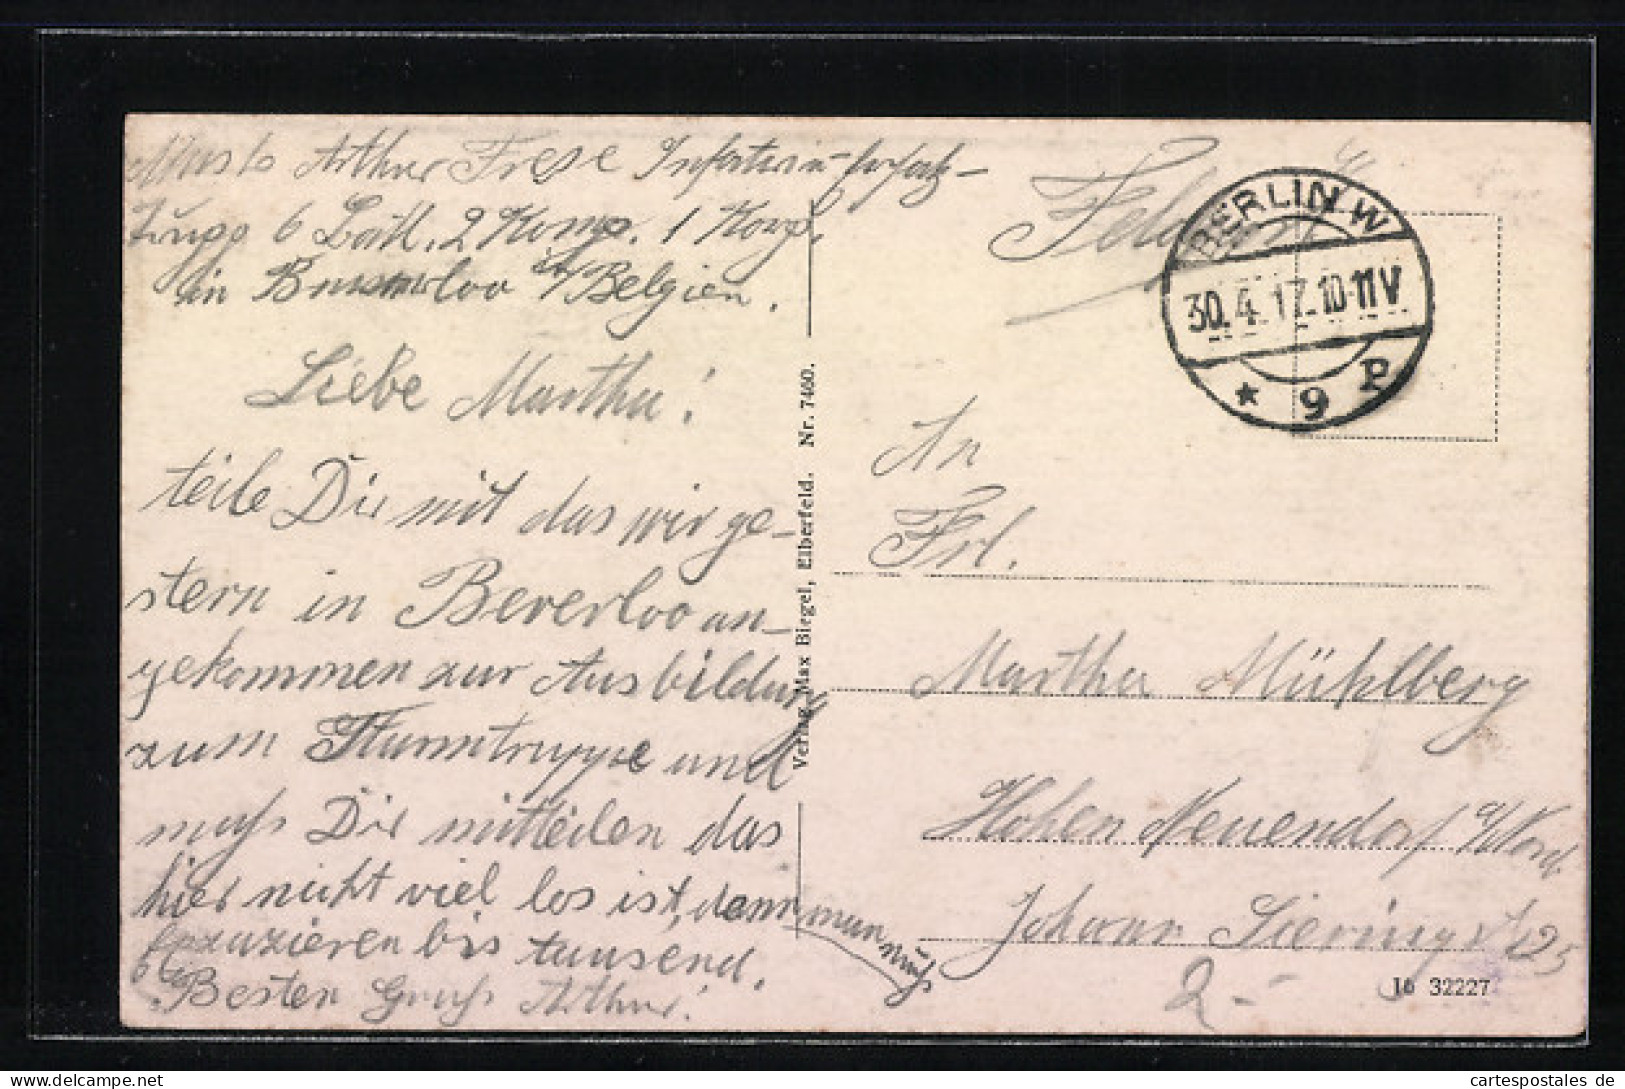 Arthur Frese
6 Batl. 2 Komp. 1 Korp.
in Beverloo i/Belgien.
Liebe Martha!
teile Dir mit das wir ge-
stern in Beverloo an-
gekommen zur Ausbildung
zum Sturmtruppe und
muß Dir mitteilen das
hier nicht viel los ist, denn man muß
exazieren bis tausend.
Besten Gruß Arthur!
Verlag Max Biegel, Elberfeld. Nr. 7460.
BERLIN W
30.4.17.10-11V
* 9 P
An
Frl.
Martha Mühlberg
Hohen Neuendorf a/Nord.
2.-
16 32227
cartespostales de